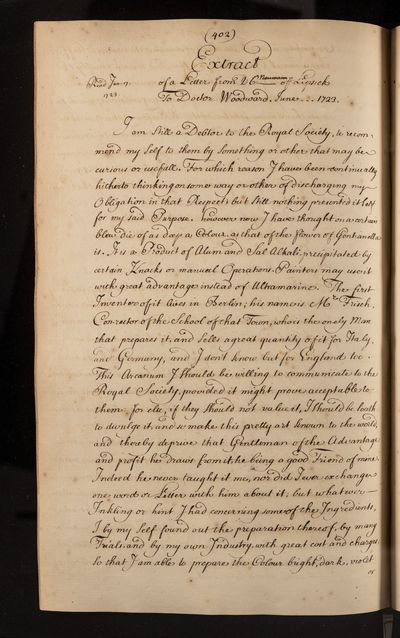 (402)
Extract
Read Jan 7. of a Letter from of Lipsick
1723 To Doctor Woodward. June . . 1723.
I am Still a Debtor to the Royal Society, to recom,
mend my Self to them by Something or other that may be
curious or usefull. For which reason I have been continually
hitherto thinking on some way or other of discharging my
Obligation in that Respect: but Still nothing presented it Self
for my said Purpose. however now I have thought on a certain
blew die of as deep a Colour as that of the flower of Gentianella
is. It is a Product of Alum and Sal Alkali precipitated by
certain Knacks or manual Operations. Painters may use it
with great advantage instead of Ultramarine. The first
Inventor of it lives in Berlin; his name is Mr. Frisch,
Conrector of the School of that Town, who is the onely Man
that prepares it, and Sells a great quantity of it for Italy
and Germany, and I dont know but for England too.
This Arcanum I Should be willing to communicate to the
Royal Society, provided it might prove acceptable to
them: for else, if they Should not value it, I Should be loath
to divulge it, and so make this pretty art known to the world,
and thereby deprive that Gentleman of the Advantage
and profit he draws from it: he being a good Friend of mine.
Indeed he never taught it me, nor did I ever exchange
one word or Letter with him about it; but whatever
Inkling or hint I had concerning some of the Ingredients,
I by my Self found out the preparation thereof, by many
Trials, and by my own Industry, with great cost and charges
So that I am able to prepare the Colour bright, dark, violet
or